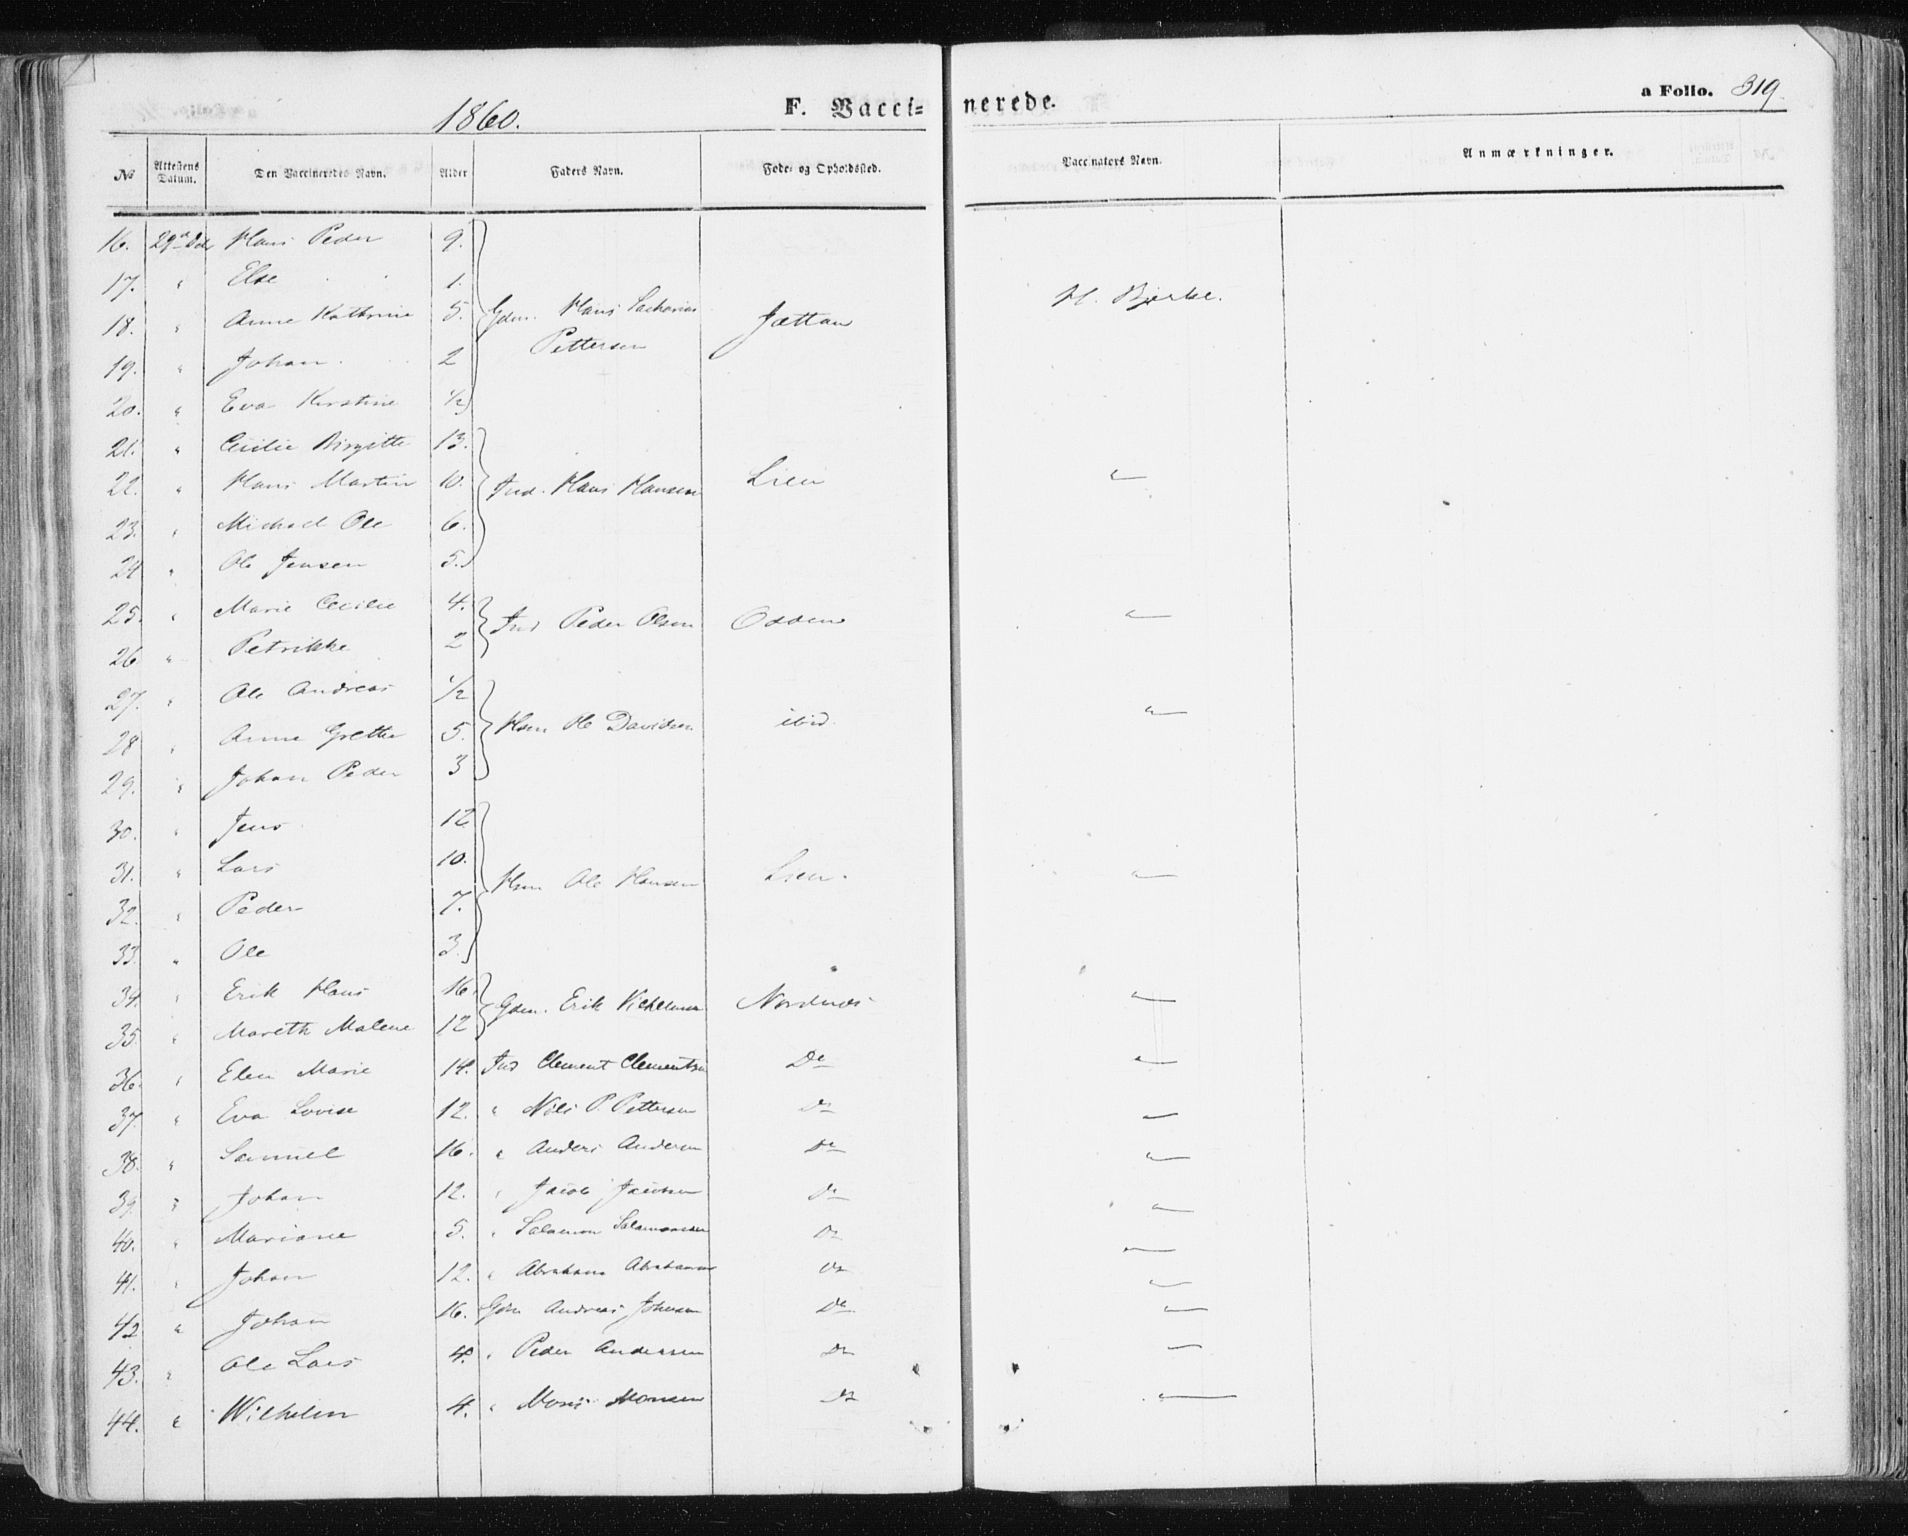 1860. F. Vacci= nerede. a Folio. 319.
No Attestens Datum. Den Vaccineredes Navn. Alder Faders Navn. Føde- og Opholdssted. Vaccinators Navn. Anmærkninger.
16. 29de Hans Peder 9.
17. " Else 1.
18. " Anne Kathrine 5. Gdm. Hans Zacharias Jættan H. Bjerke.
19. " Johan 2 Pettersen
20. " Eva Kirstine 1/2
21. " Cecilie Birgitte 13.
22. " Hans Martin 10. Ind. Hans Hansen Lien "
23. " Michael Ole 6.
24 " Ole Jensen 5.
25. " Marie Cecilie 4. Ind Peder Olsen Odden "
26 " Petrikke 2
27. " Ole Andreas 1/2
28 " Anne Grethe 5. Hsm Ole Davidsen ibid. "
29. " Johan Peder 3
30. " Jens 12
31. " Lars 10. Hsm Ole Hansen Lien. "
32. " Peder 7.
33. " Ole 3.
34. " Erik Hans 16. Gdm. Erik Vilhelmsen Nordnes "
35. " Mareth Malene 12
36. " Elen Marie 14. Ind Clement Clementsen Do "
37. " Eva Lovise 12. " Nils P. Pettersen Do "
38. " Samuel 16. " Anders Andersen Do "
39. " Johan 12. " Jacob Jacobsen Do "
40. " Mariane 5. " Salamon Salamonsen Do "
41. " Johan 12. " Abraham Abrahamsen Do "
42 " Johan 16. Gdm Andreas Johnsen Do "
43. " Ole Lars 4. " Peder Andersen Do "
44. " Wilhelm 4. " Mons Monsen Do "